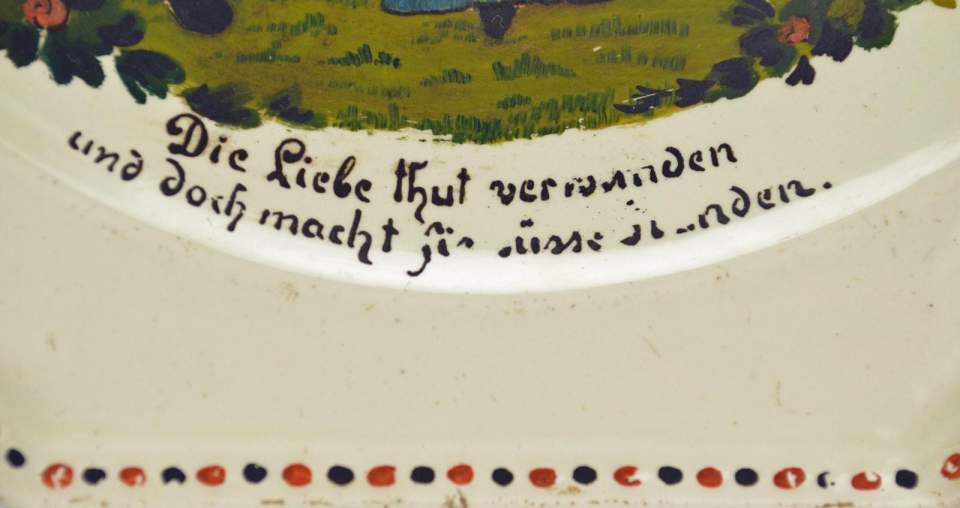 Die Liebe thut verwunden
und doch macht sie süsse Stunden.